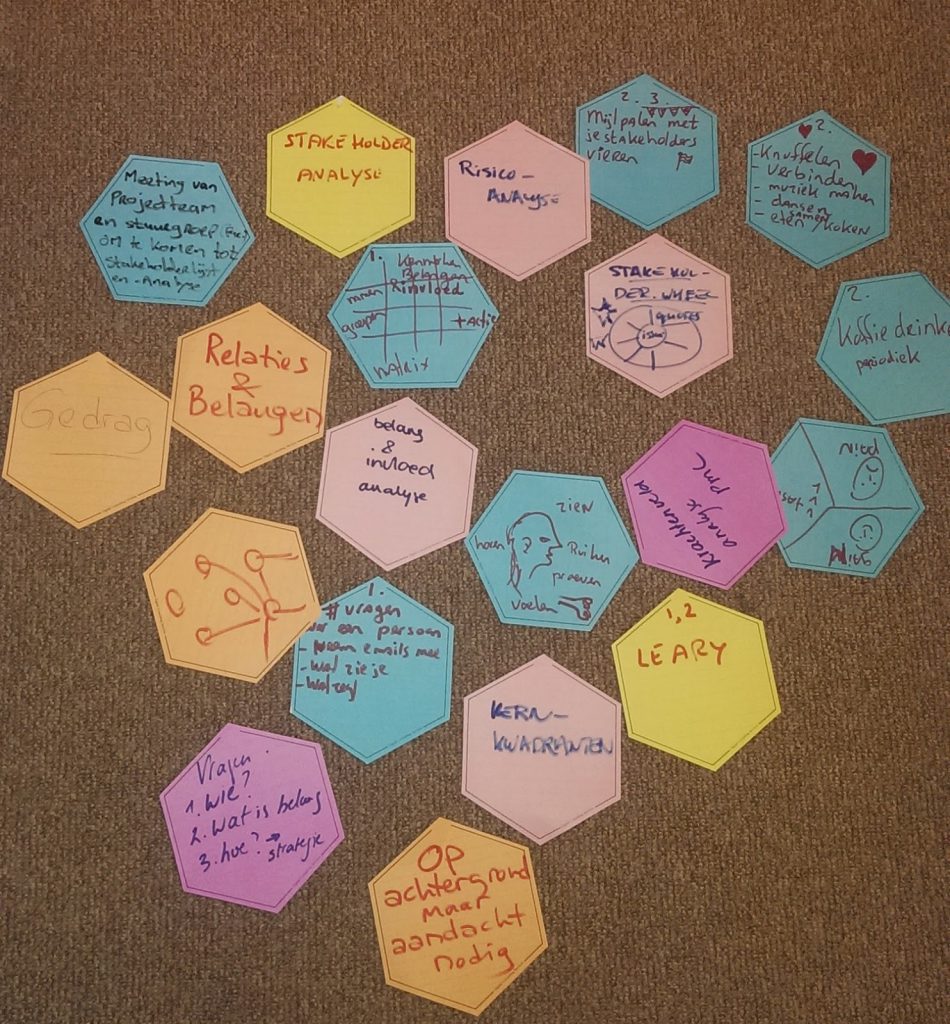 STAKEHOLDER
ANALYSE
Risico-
ANAlySE
2. 3.
Mijlpalen met
je stakeholders
vieren
2.
- Knuffelen
- verbinden
- muziek maken
- dansen
samen
- eten/koken
Meeting van
Projectteam
en stuurgroep
om te komen tot
Stakeholderlijst
en -Analyse
1.
Belangen
invloed
groepen
+Actie
Matrix
STAKEHOL-
DER.WHEEL
quotes
2.
Koffie drinke
periodiek
Relaties
&
Belangen
Gedrag
belang
&
invloed
analyse
zien
horen
Ruiken
proeven
voelen
krachtenveld
analyse
PMC
pain
gain
1.
# vragen
een persoon
- Neem emails mee
- Wat zie je
- Wat
1,2
LEARY
KERN-
KWADRANTEN
Vragen
1. Wie?
2. Wat is belang
3. hoe? → strategie
Op
achtergrond
maar
aandacht
nodig